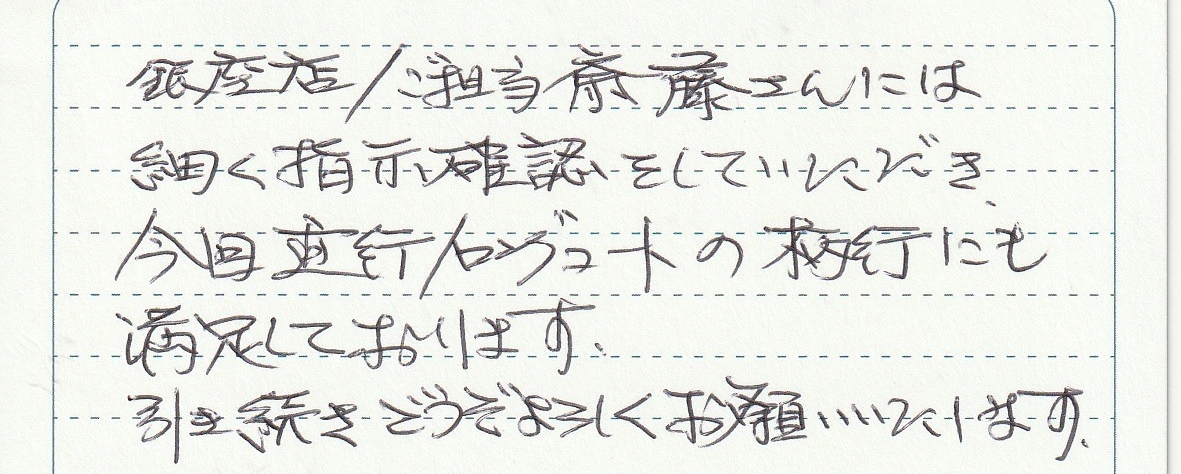 銀座店/ご担当斎藤さんには
細く指示、確認、をしていただき、
今回直行/ロングコートの柄行にも
満足しております、
引き続きどうぞよろしくお願いいたします、